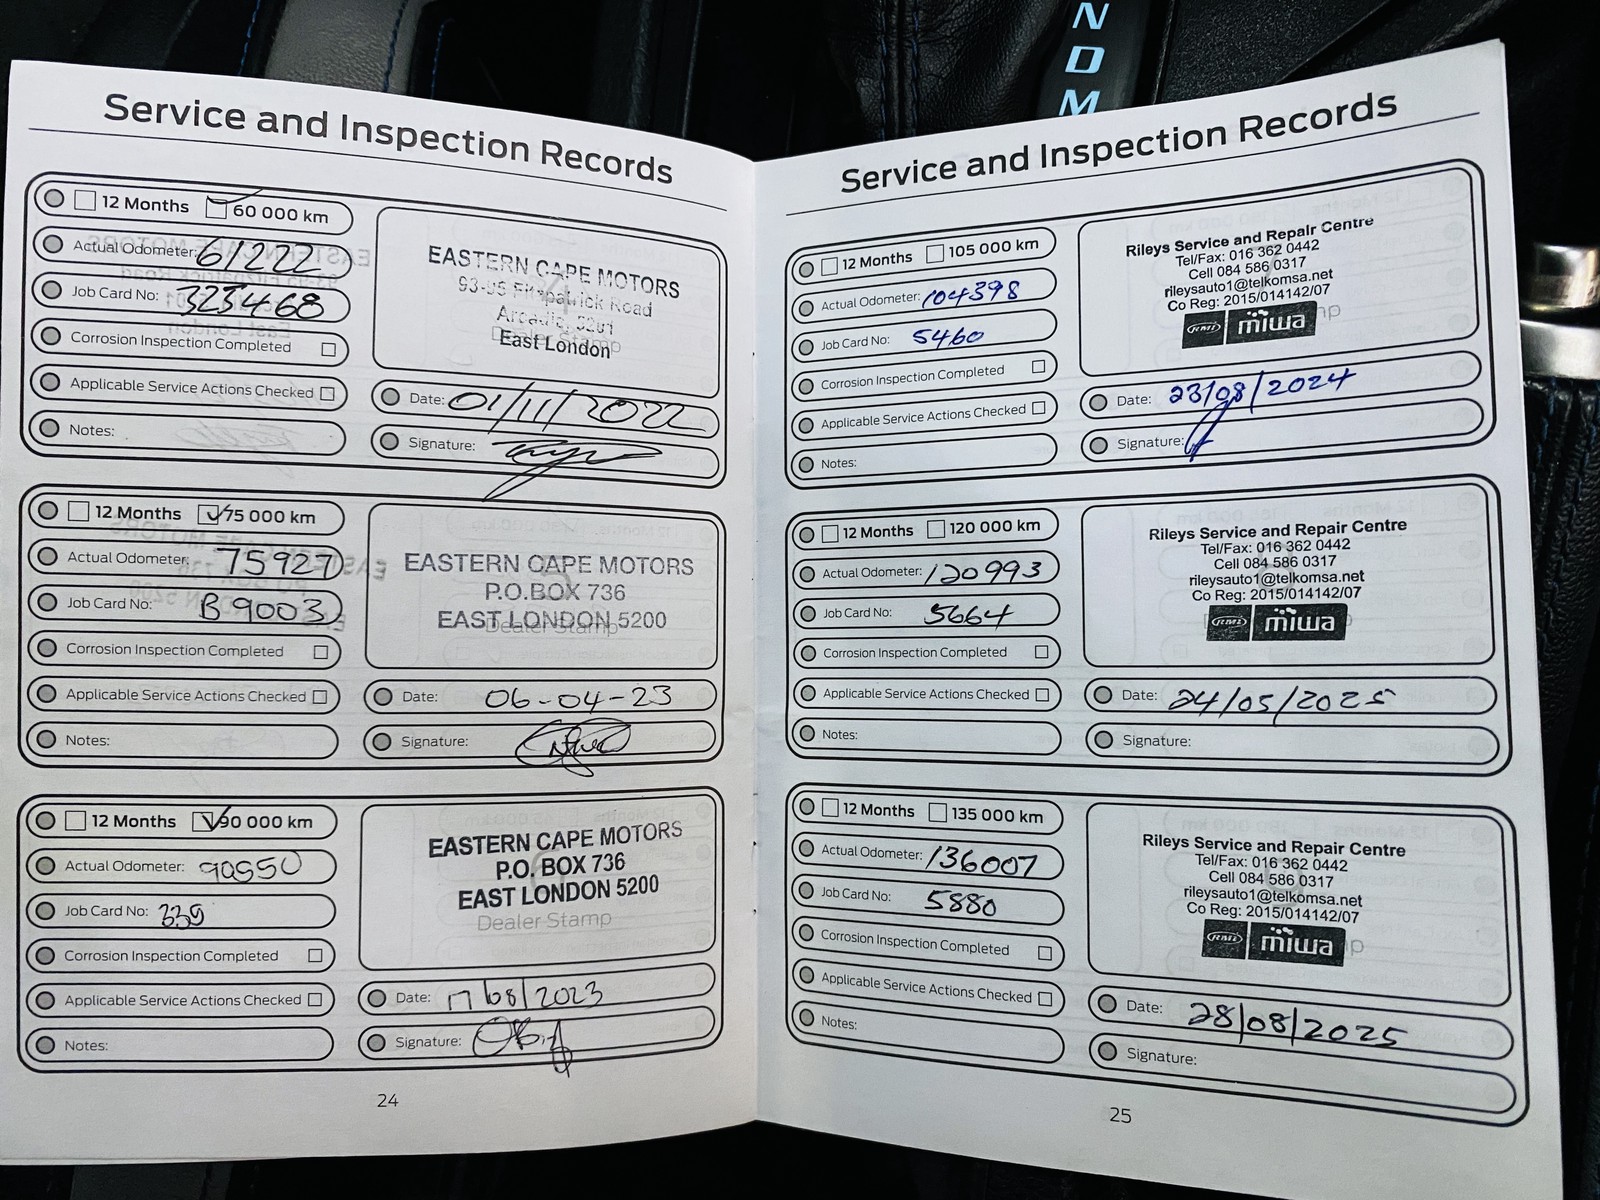 N
D
M
Service and Inspection Records
12 Months 60 000 km
Actual Odometer: 61222
Job Card No: 323468
Corrosion Inspection Completed
Applicable Service Actions Checked
Notes:
EASTERN CAPE MOTORS
Fitzpatrick Road
Arcadia, 5201
East London
Date: 01/11/2022
Signature:
12 Months 75 000 km
Actual Odometer: 75927
Job Card No: B9003
Corrosion Inspection Completed
Applicable Service Actions Checked
Notes:
EASTERN CAPE MOTORS
P.O.BOX 736
EAST LONDON 5200
Dealer Stamp
Date: 06-04-23
Signature:
12 Months 90 000 km
Actual Odometer: 90550
Job Card No: 339
Corrosion Inspection Completed
Applicable Service Actions Checked
Notes:
EASTERN CAPE MOTORS
P.O. BOX 736
EAST LONDON 5200
Dealer Stamp
Date: 17/08/2023
Signature:
24
Service and Inspection Records
12 Months 105 000 km
Actual Odometer: 104398
Job Card No: 5460
Corrosion Inspection Completed
Applicable Service Actions Checked
Notes:
Rileys Service and Repair Centre
Tel/Fax: 016 362 0442
Cell 084 586 0317
rileysauto1@telkomsa.net
Co Reg: 2015/014142/07
RMI miwa
Date: 23/08/2024
Signature:
12 Months 120 000 km
Actual Odometer: 120993
Job Card No: 5664
Corrosion Inspection Completed
Applicable Service Actions Checked
Notes:
Rileys Service and Repair Centre
Tel/Fax: 016 362 0442
Cell 084 586 0317
rileysauto1@telkomsa.net
Co Reg: 2015/014142/07
RMI miwa
Date: 24/05/2025
Signature:
12 Months 135 000 km
Actual Odometer: 136007
Job Card No: 5880
Corrosion Inspection Completed
Applicable Service Actions Checked
Notes:
Rileys Service and Repair Centre
Tel/Fax: 016 362 0442
Cell 084 586 0317
rileysauto1@telkomsa.net
Co Reg: 2015/014142/07
RMI miwa
Date: 28/08/2025
Signature:
25